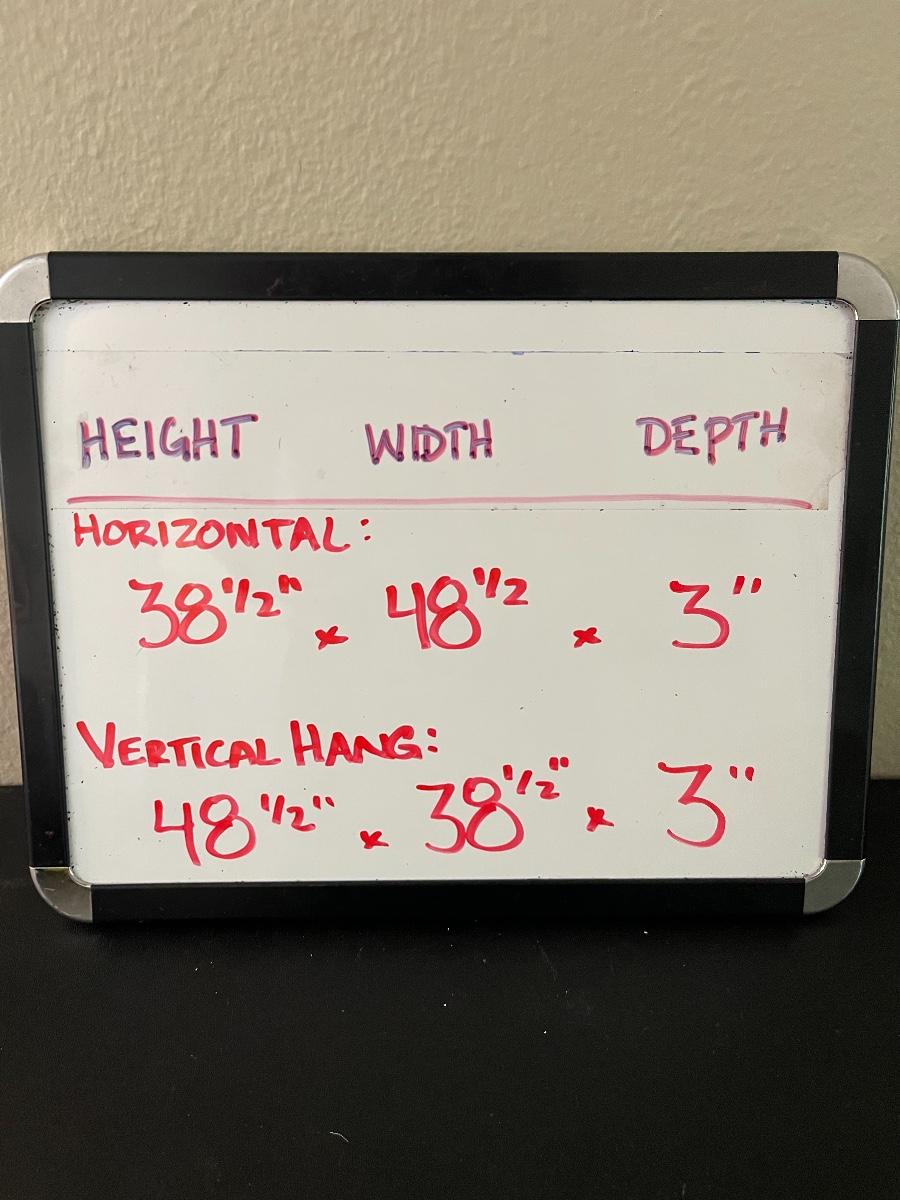 HEIGHT WIDTH DEPTH
HORIZONTAL:
38 1/2" x 48 1/2 x 3"
VERTICAL HANG:
48 1/2" x 38 1/2" x 3"